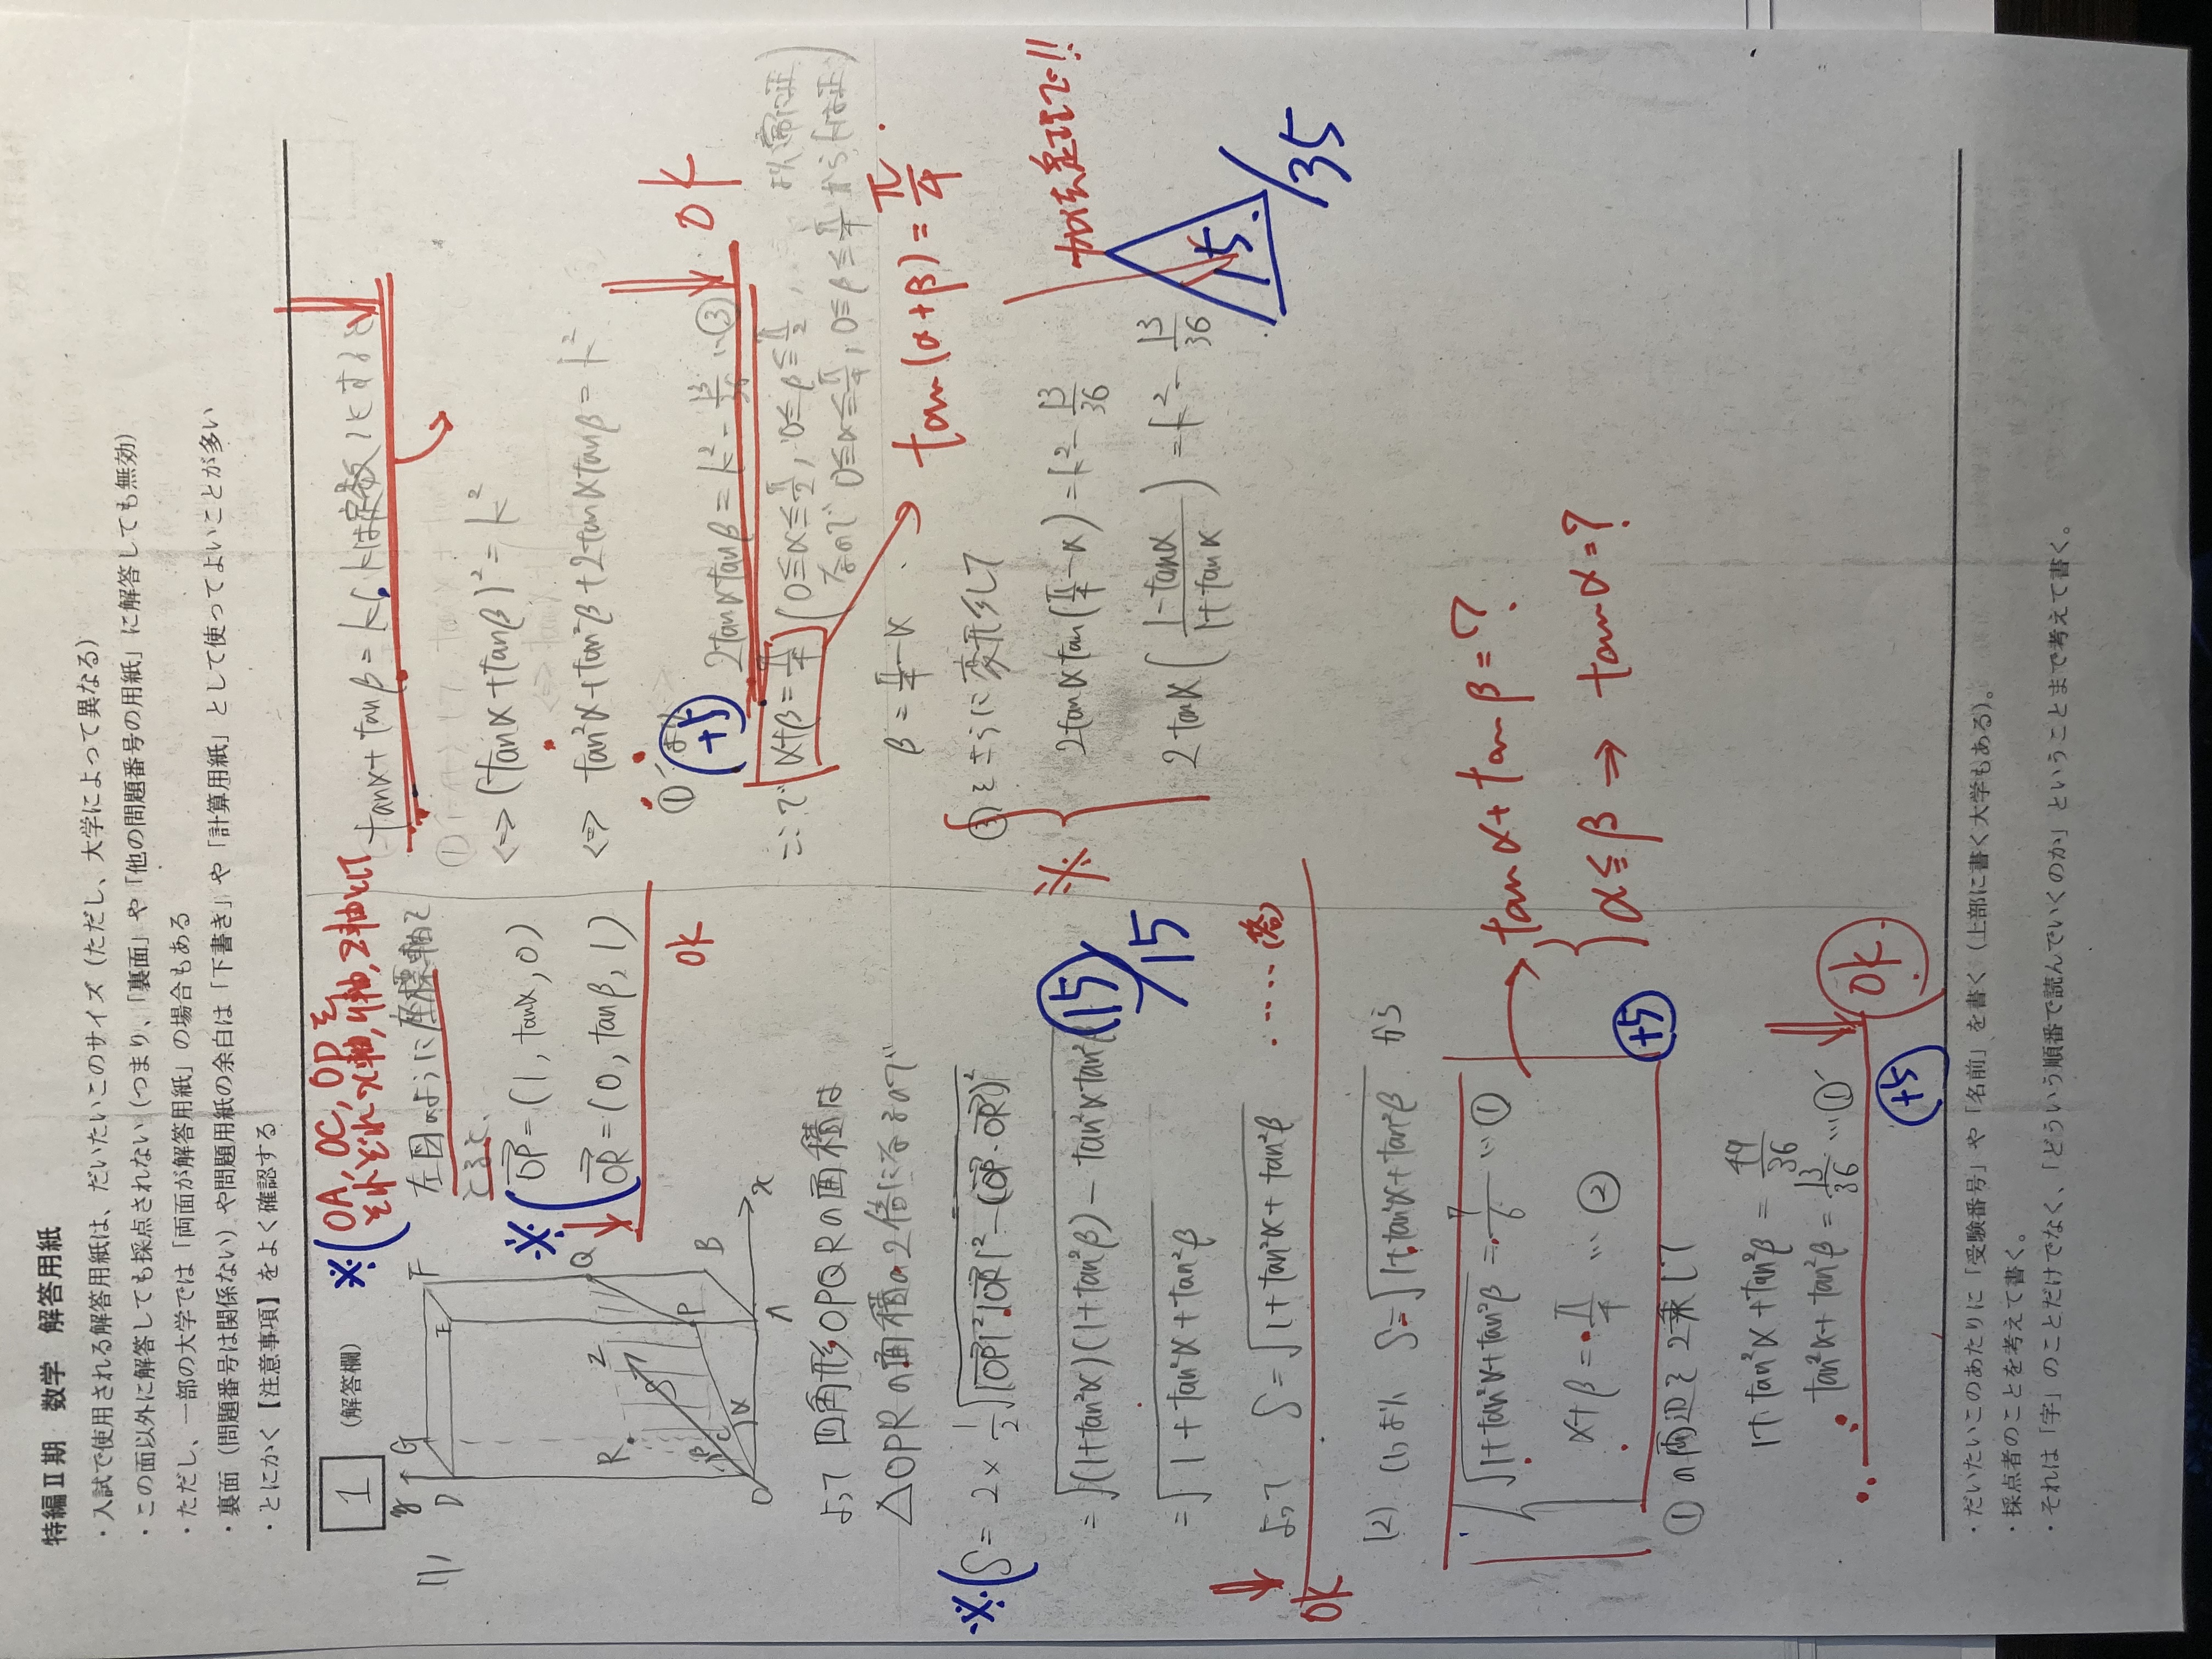 特編Ⅱ期 数学 解答用紙
・入試で使用される解答用紙は、だいたいこのサイズ（ただし、大学によって異なる）
・この面以外に解答しても採点されない（つまり、「裏面」や「他の問題番号の用紙」に解答しても無効）
・ただし、一部の大学では「両面が解答用紙」の場合もある
・裏面（問題番号は関係ない）や問題用紙の余白は「下書き」や「計算用紙」として使ってよいことが多い
・とにかく【注意事項】をよく確認する
1
（解答欄）
(1)
y
D
G
E
F
R
Z
Q
S
P
B
C
β
α
O
A
x
※
OA, OC, ODを
それぞれx軸,y軸,z軸として
左図のように座標軸を
とると、
※
OP = (1, tanα, 0)
OR = (0, tanβ, 1)
OK
よって 四角形OPQRの面積は
△OPRの面積の2倍になるので
※
S = 2 × 1/2 √|OP|²|OR|² - (OP・OR)²
= √(1+tan²α)(1+tan²β) - tan²αtan²β
15/15
= √1 + tan²α + tan²β
よって S = √1 + tan²α + tan²β
……(答)
OK
(2) (1)より S = √1+tan²α+tan²β から
√1+tan²α+tan²β = 7/6 …①
α+β = π/4 … ②
+5
tanα + tanβ = ?
α≦β ⇒ tanα = ?
①の両辺を2乗して
1+tan²α+tan²β = 49/36
tan²α+tan²β = 13/36 …①′
OK
+5
tanα+tanβ = k (kは定数)とすると
⇔ (tanα+tanβ)² = k²
⇔ tan²α+tan²β+2tanαtanβ = k²
①′より
2tanαtanβ = k² - 13/36 …③
OK
+5
ここで α+β=π/4 (0≦α≦π/2, 0≦β≦π/2,
なので 0≦α≦π/4, 0≦β≦π/4 から
tan(α+β) = π/4
β = π/4 - α
③をさらに変形して
※
2tanαtan(π/4-α) = k² - 13/36
2tanα(1-tanα/1+tanα) = k² - 13/36
加法定理で!!
15/35
・だいたいこのあたりに「受験番号」や「名前」を書く（上部に書く大学もある）。
・採点者のことを考えて書く。
・それは「字」のことだけでなく、「どういう順番で読んでいくのか」ということまで考えて書く。